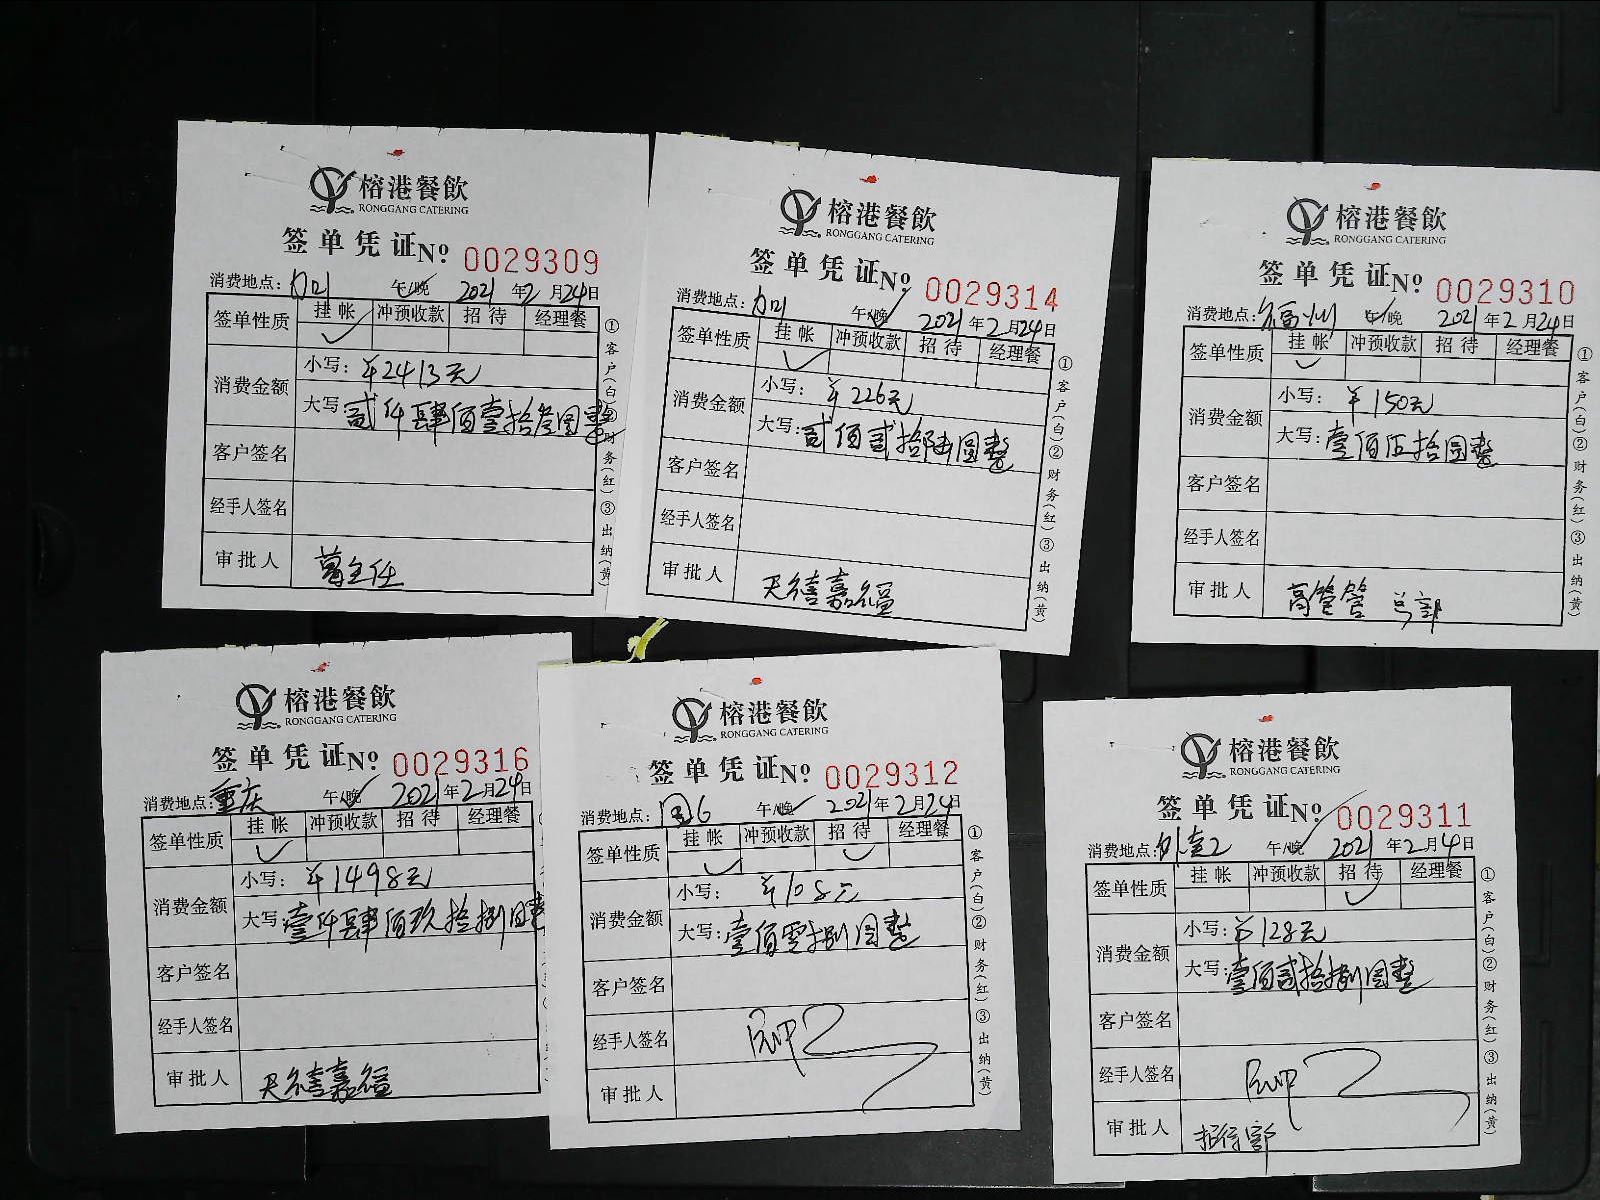 榕港餐飲
RONGGANG CATERING
签单凭证 Nº 0029309
消费地点: 午/晚 2021年2月24日
签单性质 挂帐 冲预收款 招待 经理餐
消费金额 小写: ¥2413元
大写: 贰仟肆佰壹拾叁圆整
客户签名
经手人签名
审批人 葛主任
①客户(白)②财务(红)③出纳(黄)
榕港餐飲
RONGGANG CATERING
签单凭证 Nº 0029314
消费地点: 午/晚 2021年2月24日
签单性质 挂帐 冲预收款 招待 经理餐
消费金额 小写: ¥226元
大写: 贰佰贰拾陆圆整
客户签名
经手人签名
审批人 天禧嘉福
①客户(白)②财务(红)③出纳(黄)
榕港餐飲
RONGGANG CATERING
签单凭证 Nº 0029310
消费地点: 福州 午/晚 2021年2月24日
签单性质 挂帐 冲预收款 招待 经理餐
消费金额 小写: ¥150元
大写: 壹佰伍拾圆整
客户签名
经手人签名
审批人 高管餐 总部
①客户(白)②财务(红)③出纳(黄)
榕港餐飲
RONGGANG CATERING
签单凭证 Nº 0029316
消费地点: 重庆 午/晚 2021年2月24日
签单性质 挂帐 冲预收款 招待 经理餐
消费金额 小写: ¥1498元
大写: 壹仟肆佰玖拾捌圆整
客户签名
经手人签名
审批人 天禧嘉福
榕港餐飲
RONGGANG CATERING
签单凭证 Nº 0029312
消费地点: 午/晚 2021年2月24日
签单性质 挂帐 冲预收款 招待 经理餐
消费金额 小写: ¥108元
大写: 壹佰零捌圆整
客户签名
经手人签名
审批人
①客户(白)②财务(红)③出纳(黄)
榕港餐飲
RONGGANG CATERING
签单凭证 Nº 0029311
消费地点: 外套2 午/晚 2021年2月4日
签单性质 挂帐 冲预收款 招待 经理餐
消费金额 小写: ¥128元
大写: 壹佰贰拾捌圆整
客户签名
经手人签名
审批人 招待部
①客户(白)②财务(红)③出纳(黄)